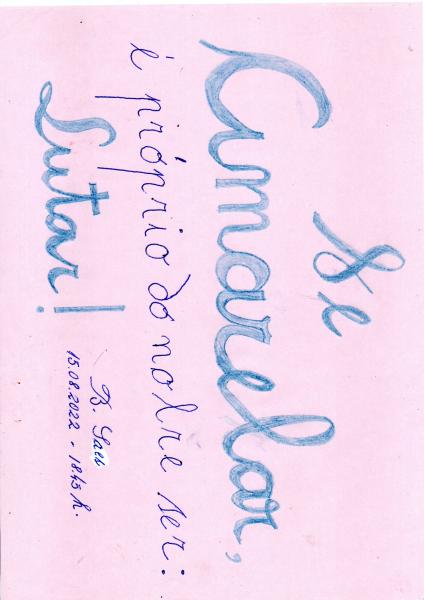 Se
Amarelar,
é próprio do nobre ser:
Lutar!
B.
15.08.2022 - 18.45 h.